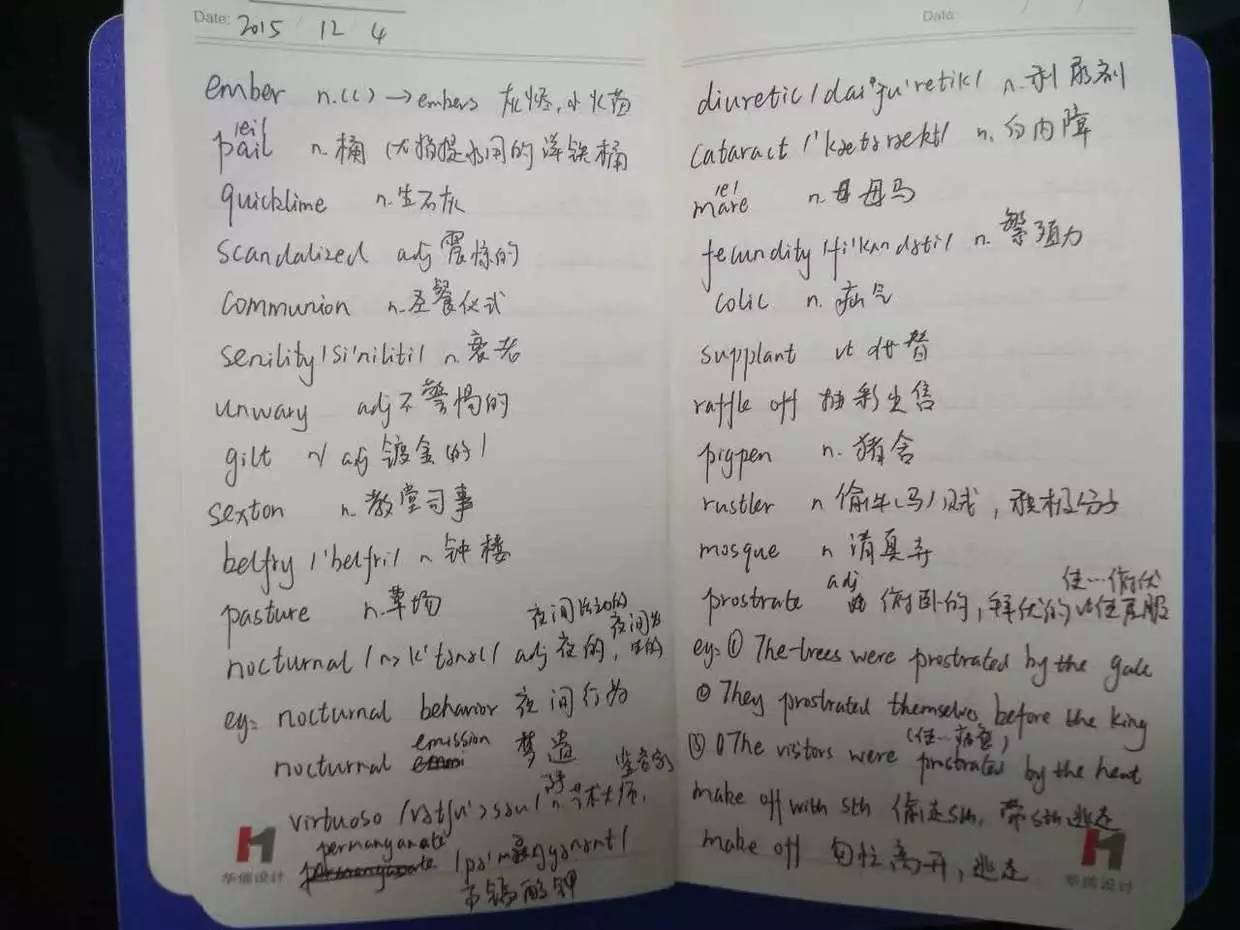 Date: 2015 12 4
ember n.(c) →embers 灰烬,小火苗
pail /ei/ n.桶 (尤指提水用的洋铁桶
quicklime n.生石灰
scandalized adj 震惊的
communion n.圣餐仪式
senility /si'niliti/ n.衰老
unwary adj 不警惕的
gilt adj 镀金的
sexton n.教堂司事
belfry /'belfri/ n 钟楼
pasture n.草场
夜间活动的
nocturnal /nɔk'tənəl/ adj 夜的,
eg: nocturnal behavior 夜间行为
nocturnal emission 梦遗
virtuoso n.艺术大师, 鉴赏家
permanganate
高锰酸钾
华儒设计
Date:
diuretic n.利尿剂
cataract /'kætərækt/ n.白内障
mare n.母马
fecundity /fi'kʌndəti/ n.繁殖力
colic n.疝气
supplant vt 代替
raffle off 抽彩出售
pigpen n.猪舍
rustler n 偷牛(马)贼,积极分子
mosque n 清真寺
使…俯伏
prostrate adj 俯卧的,拜伏的 vt 使屈服
eg: ① The trees were prostrated by the gale
② They prostrated themselves before the king
③ The visitors were prostrated by the heat
make off with sth 偷走sth, 带sth逃走
make off 匆忙离开,逃走
华儒设计